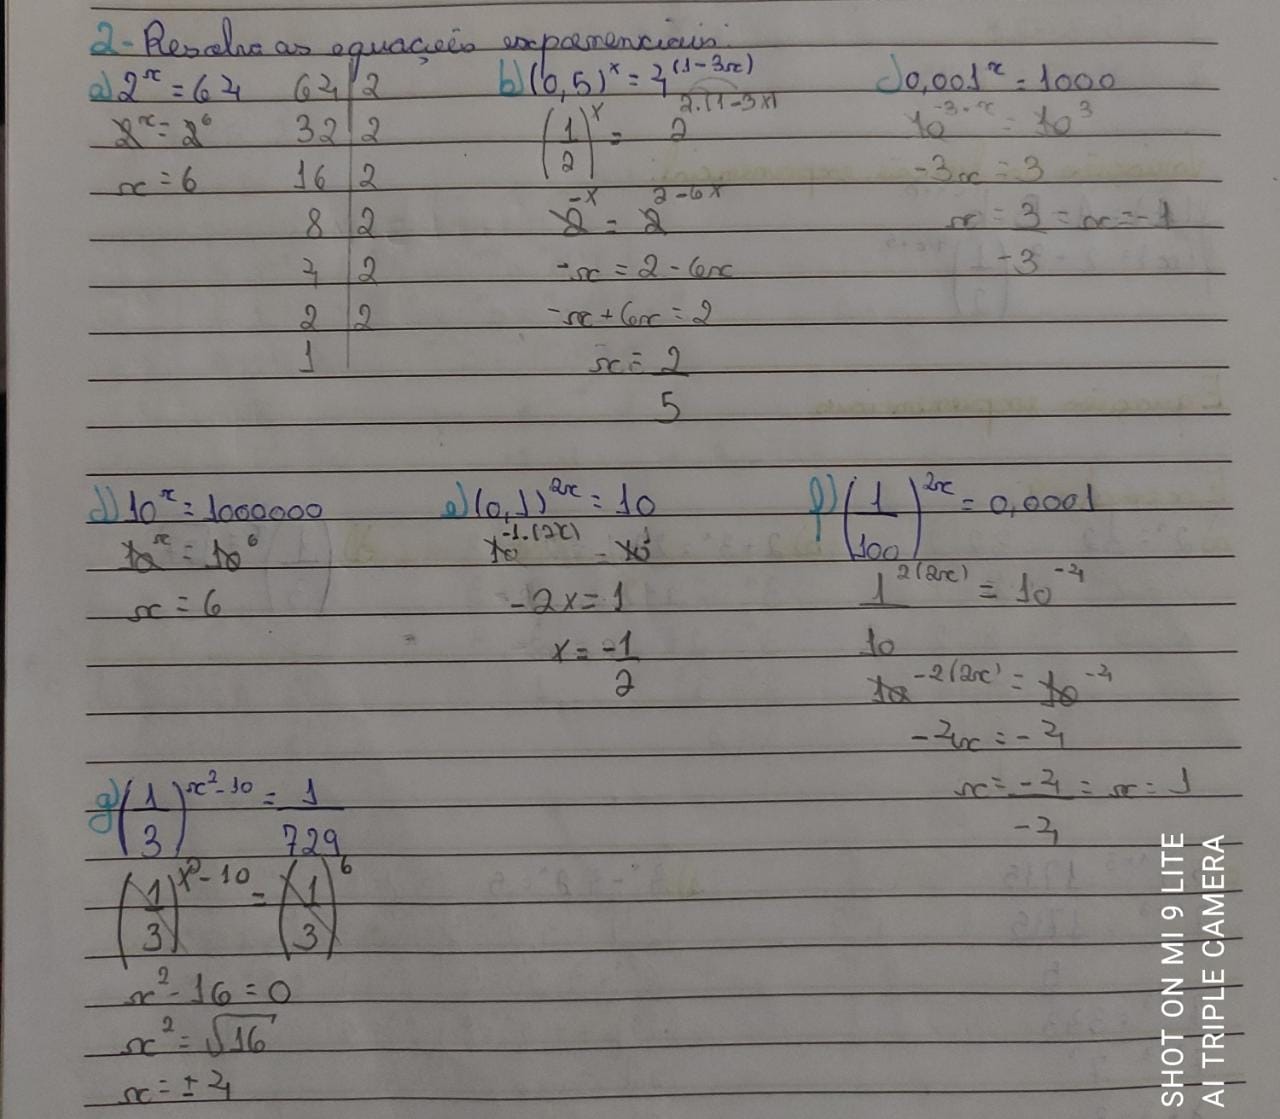 2- Resolva as equações exponenciais.
a) 2^x = 64
64 | 2
2^x = 2^6
32 | 2
x = 6
16 | 2
8 | 2
4 | 2
2 | 2
1
b) (0,5)^x = 4^(1-3x)
(1/2)^x = 2^2.(1-3x)
2^-x = 2^2-6x
-x = 2 - 6x
-x + 6x = 2
x = 2/5
c) 0,001^x = 1000
10^-3.x = 10^3
-3x = 3
x = 3/-3 = x = -1
d) 10^x = 1000000
10^x = 10^6
x = 6
e) (0,1)^2x = 10
10^-1.(2x) = 10^1
-2x = 1
x = -1/2
f) (1/100)^2x = 0,0001
1/10^2(2x) = 10^-4
10^-2(2x) = 10^-4
-4x = -4
x = -4/-4 = x = 1
g) (1/3)^x²-10 = 1/729
(1/3)^x²-10 = (1/3)^6
x² - 16 = 0
x² = √16
x = ± 4
SHOT ON MI 9 LITE
AI TRIPLE CAMERA